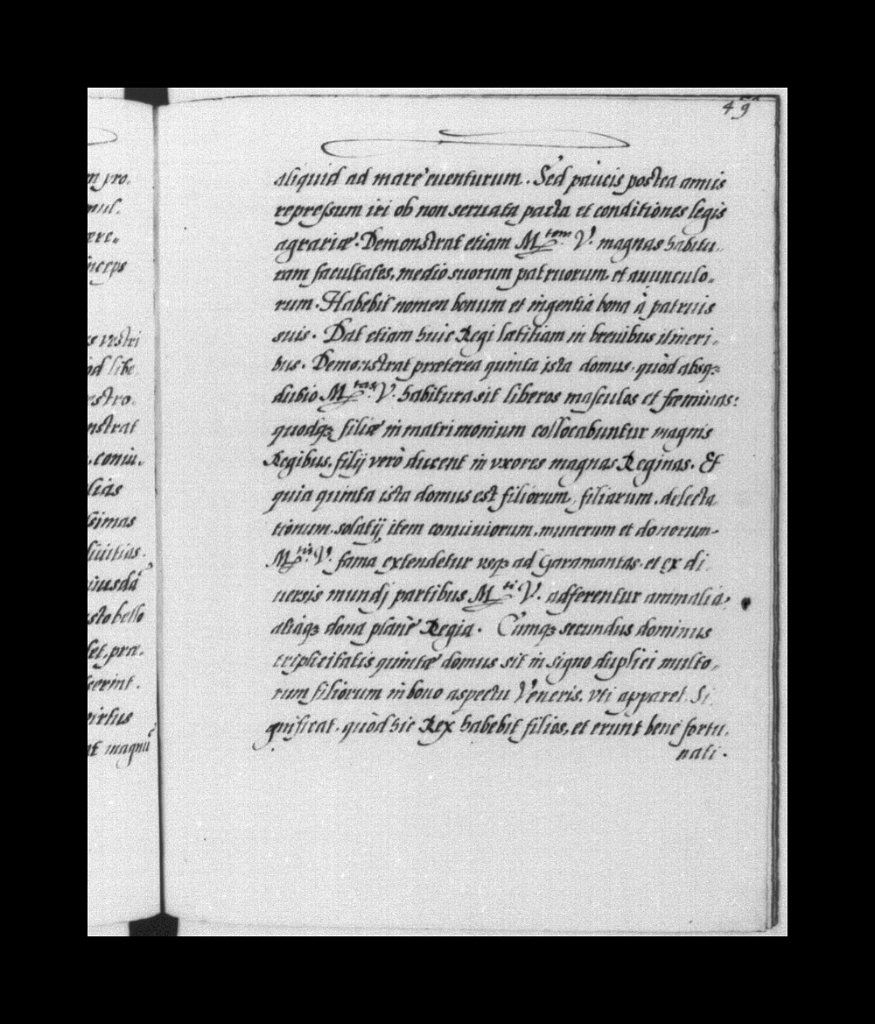 49
aliquid ad mare euenturum. Sed paucis postea annis
repressum iri ob non seruata pacta et conditiones legis
agrariæ. Demonstrat etiam M.tem V. magnas habitu-
ram facultates, medio suorum patruorum, et auunculo-
rum. Habebit nomen bonum et ingentia bona à patruis
suis. Dat etiam huic Regi lætitiam in breuibus itineri-
bus. Demonstrat præterea quinta ista domus, quòd absq;
dubio M.tas V. habitura sit liberos masculos et fœminas:
quodq; filiæ in matrimonium collocabuntur magnis
Regibus, filij verò ducent in vxores magnas Reginas. Et
quia quinta ista domus est filiorum, filiarum, delecta
tionum, solatij, item conuiuiorum, munerum et donorum
M.tis V. fama extendetur usq; ad Garamantas, et ex di
uersis mundj partibus M.ti V. adferentur animalia,
aliaq; dona planè Regia. Cumq; secundus dominus
triplicitatis quintæ domus sit in signo duplici multo-
rum filiorum in bono aspectu Veneris, vti apparet. Si
gnificat, quòd hic Rex habebit filios, et erunt bene fortu-
nati.
m pro-
mul-
ere-
inceps
es vestri
od libe
estro-
nstrat
, coniu-
lias
simas
liuitias.
iusdã
sto bello
let, præ-
serint.
virtus
at magnũ